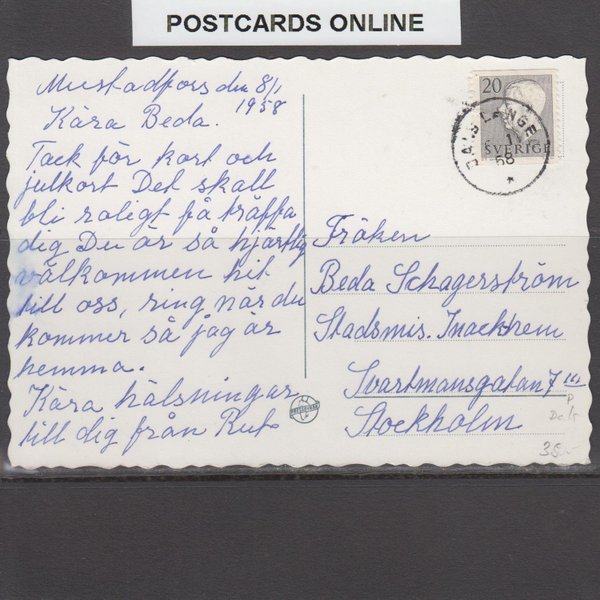 POSTCARDS ONLINE
Mustadfors den 8/1
1958
Kära Beda.
Tack för kort och
julkort Det skall
bli roligt få träffa
dig Du är så hjärtlig
välkommen hit
till oss, ring när du
kommer så jag är
hemma.
Kära hälsningar
till dig från Rut
20
SVERIGE
DALS LÅNGED
1
58
Fröken
Beda Schagerström
Stadsmis. Inackhem
Svartmansgatan 7
Stockholm
35:-